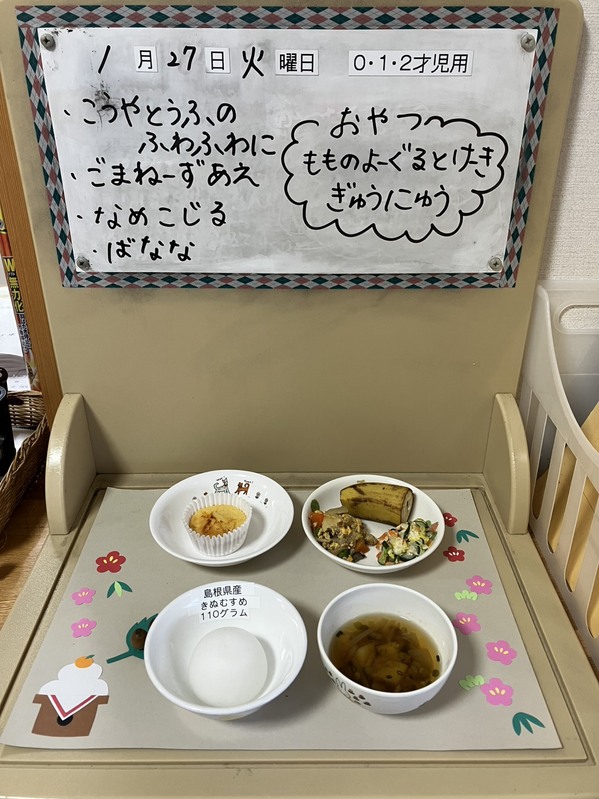 1月27日 火曜日 0・1・2才児用
・こうやとうふの
ふわふわに
・ごまねーずあえ
・なめこじる
・ばなな
おやつ
もものよーぐるとけーき
ぎゅうにゅう
島根県産
きぬむすめ
110グラム